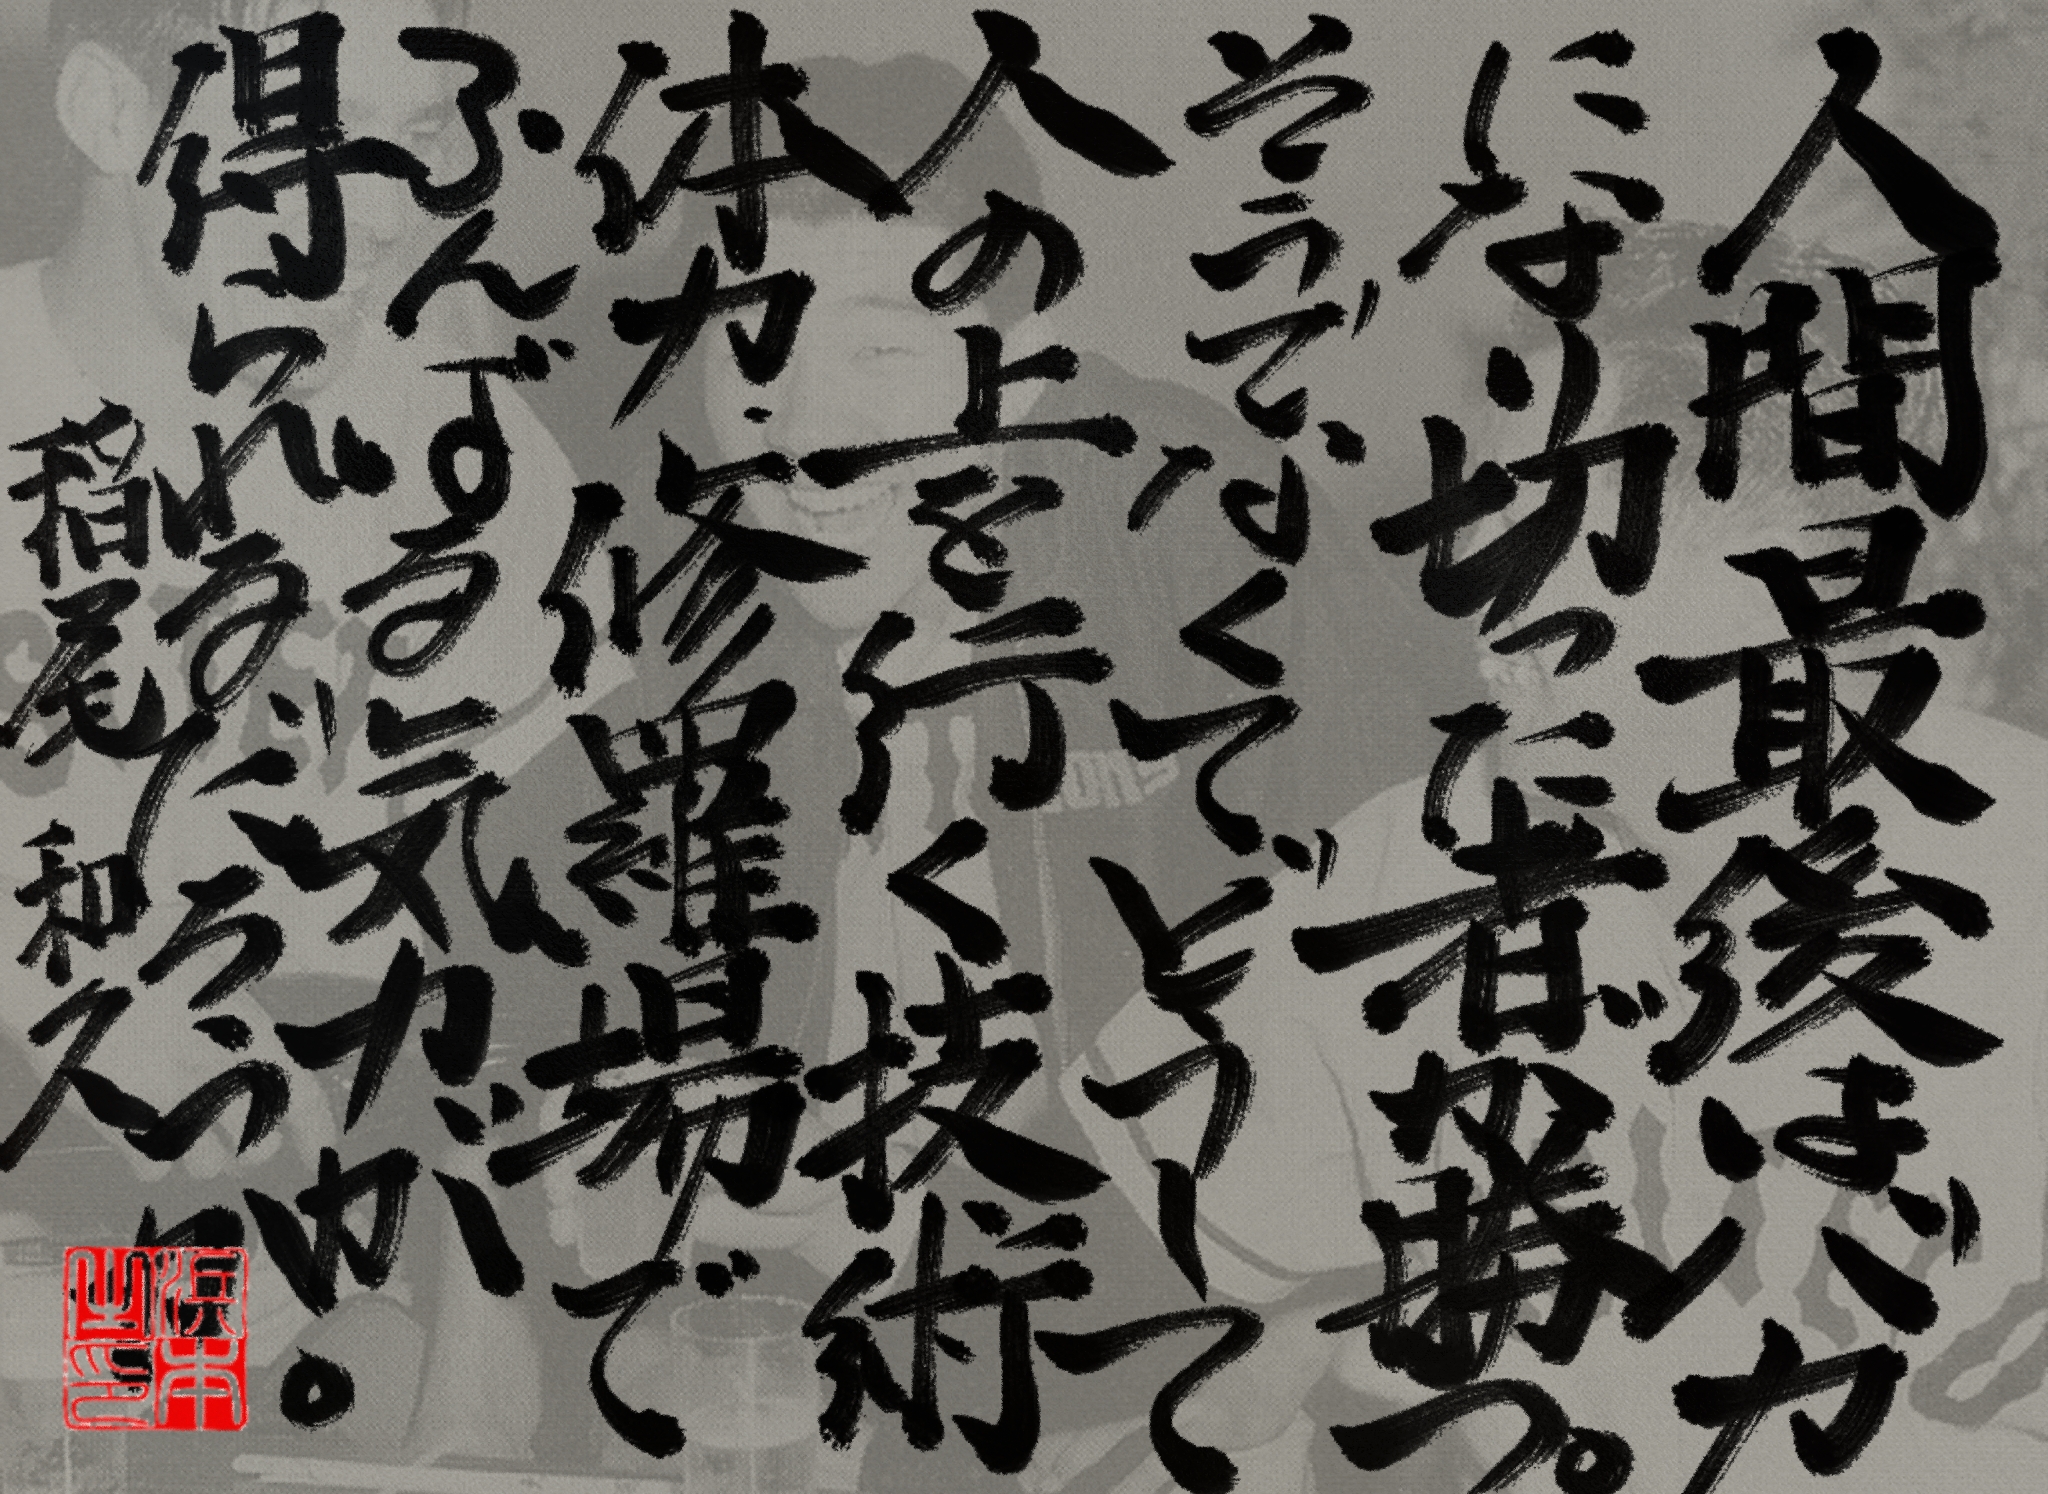 人間最後はバカ
になり切った者が勝つ。
そうで、なくてどうして
人の上を行く技術
体力、修羅場で
ふんずる気力が
得られるだろうか。
稲尾 和久
浜本之印